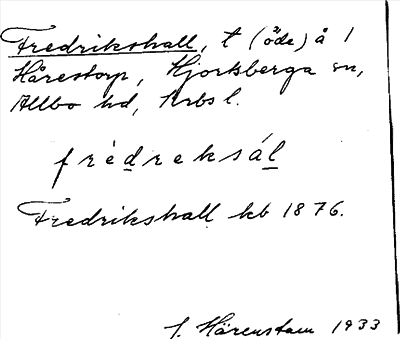 Fredrikshall, t (öde) å 1
Hårestorp, Hjortsberga sn,
Allbo hd, Krbs l.
frèdreksál
Fredrikshall kb 1876.
J. Härenstam 1933